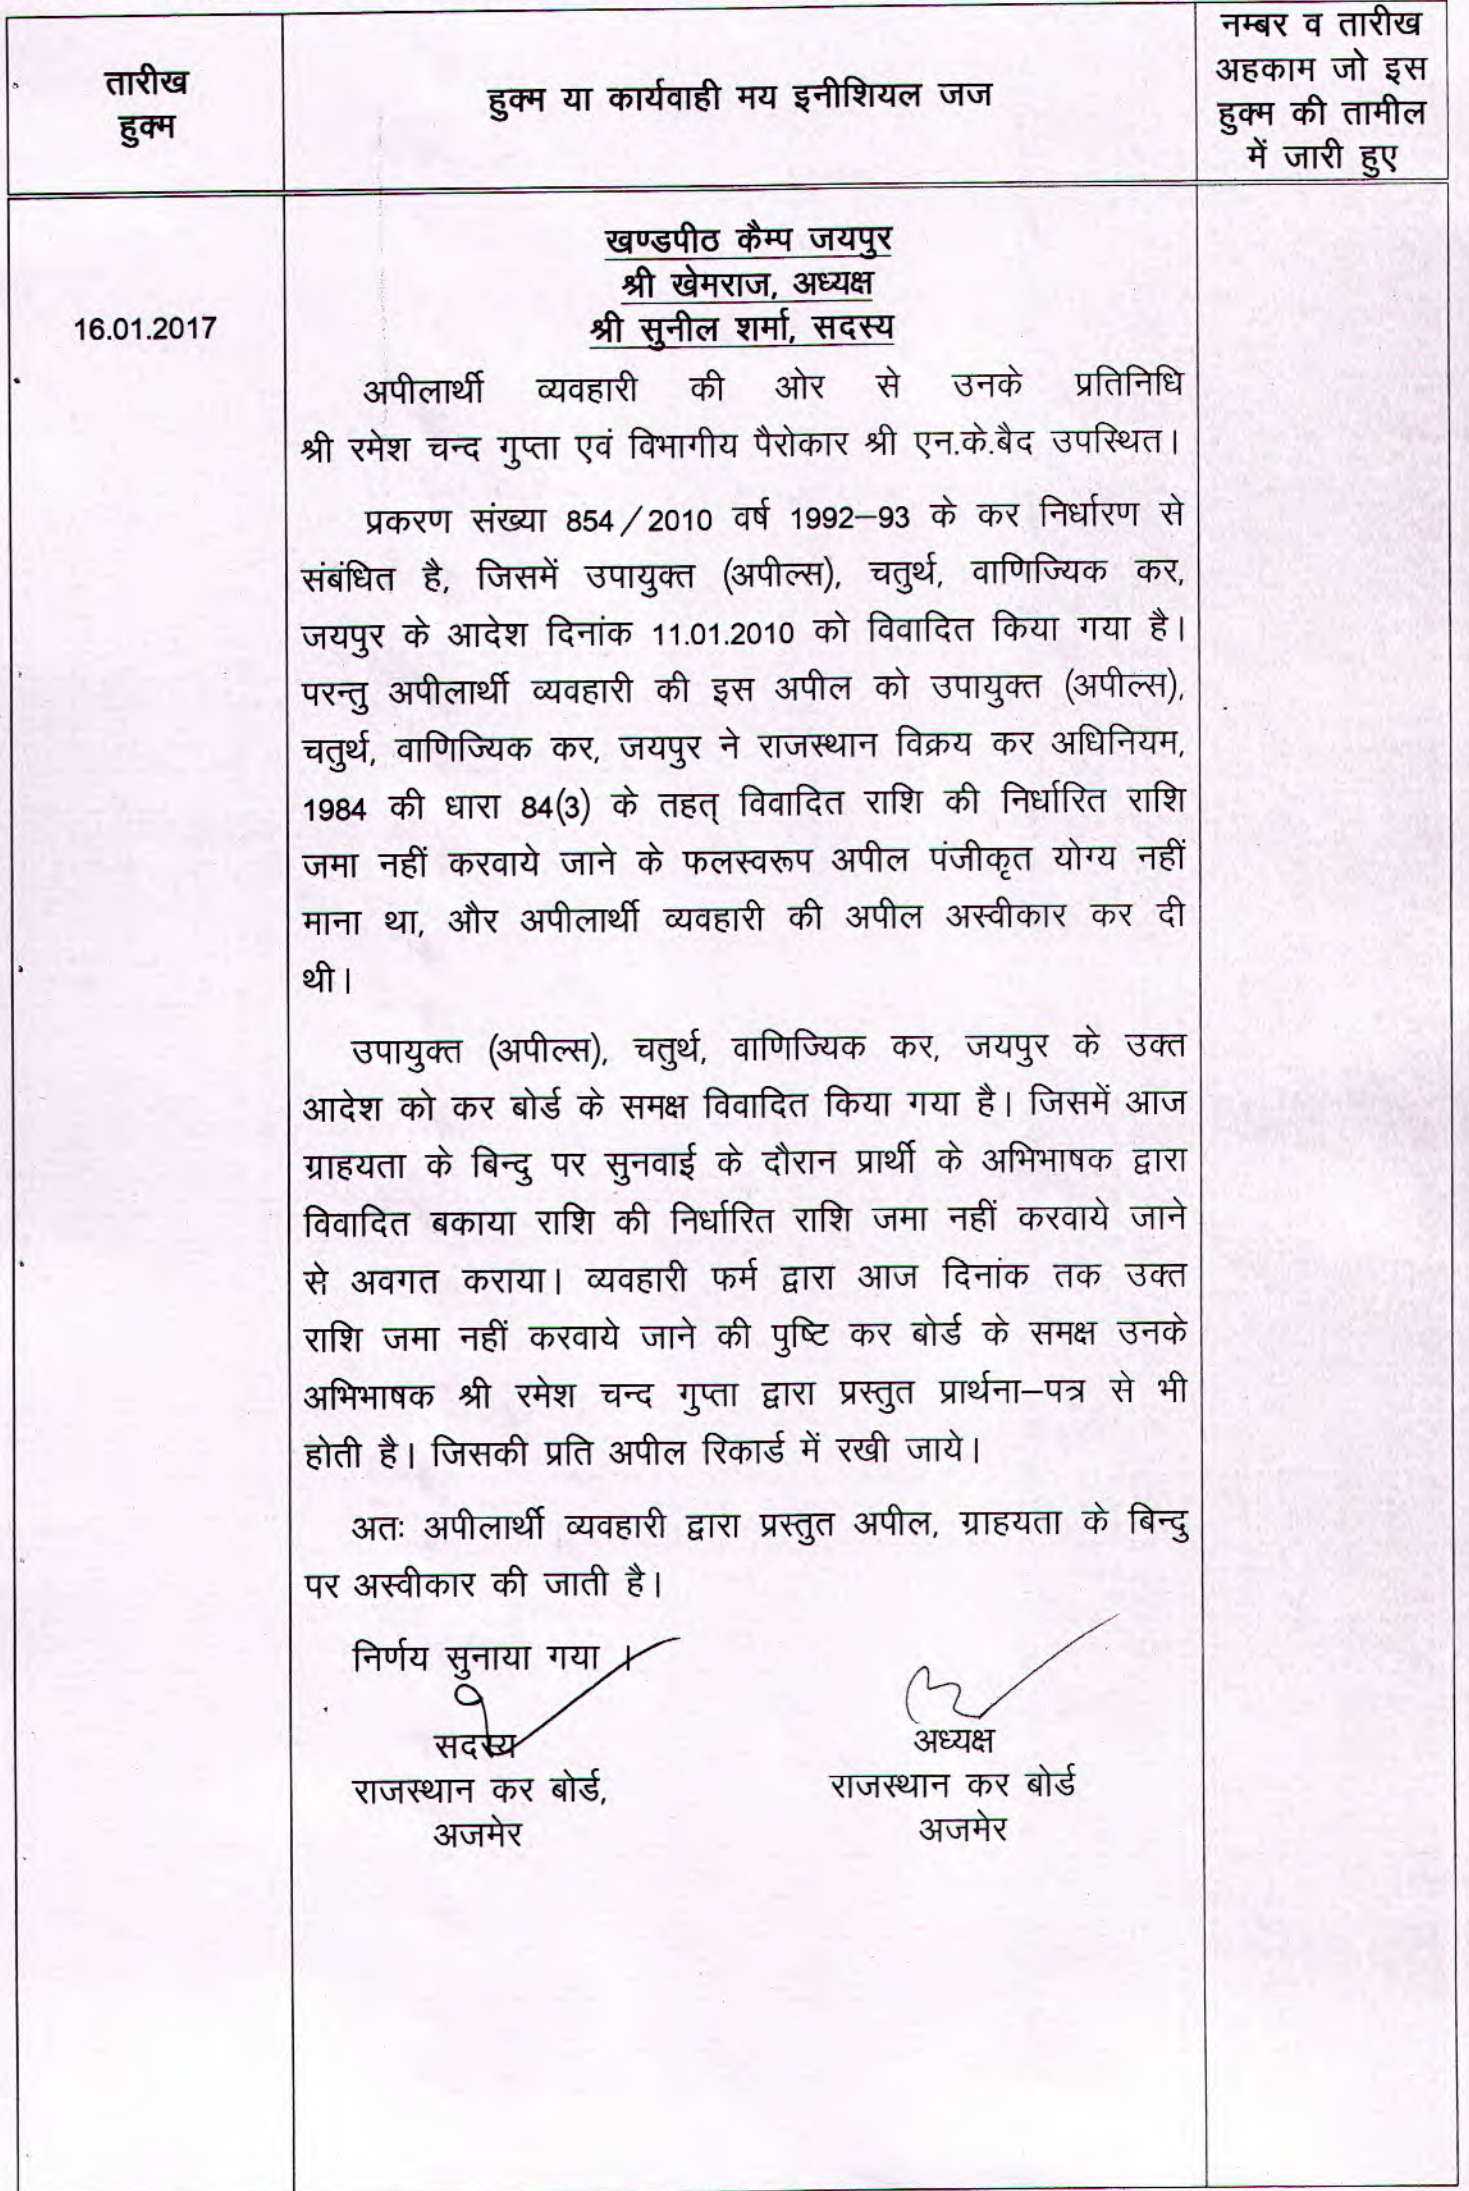 तारीख
हुक्म
हुक्म या कार्यवाही मय इनीशियल जज
नम्बर व तारीख
अहकाम जो इस
हुक्म की तामील
में जारी हुए
16.01.2017
खण्डपीठ कैम्प जयपुर
श्री खेमराज, अध्यक्ष
श्री सुनील शर्मा, सदस्य
अपीलार्थी व्यवहारी की ओर से उनके प्रतिनिधि
श्री रमेश चन्द गुप्ता एवं विभागीय पैरोकार श्री एन.के.बैद उपस्थित।
प्रकरण संख्या 854/2010 वर्ष 1992–93 के कर निर्धारण से
संबंधित है, जिसमें उपायुक्त (अपील्स), चतुर्थ, वाणिज्यिक कर,
जयपुर के आदेश दिनांक 11.01.2010 को विवादित किया गया है।
परन्तु अपीलार्थी व्यवहारी की इस अपील को उपायुक्त (अपील्स),
चतुर्थ, वाणिज्यिक कर, जयपुर ने राजस्थान विक्रय कर अधिनियम,
1984 की धारा 84(3) के तहत् विवादित राशि की निर्धारित राशि
जमा नहीं करवाये जाने के फलस्वरूप अपील पंजीकृत योग्य नहीं
माना था, और अपीलार्थी व्यवहारी की अपील अस्वीकार कर दी
थी।
उपायुक्त (अपील्स), चतुर्थ, वाणिज्यिक कर, जयपुर के उक्त
आदेश को कर बोर्ड के समक्ष विवादित किया गया है। जिसमें आज
ग्राहयता के बिन्दु पर सुनवाई के दौरान प्रार्थी के अभिभाषक द्वारा
विवादित बकाया राशि की निर्धारित राशि जमा नहीं करवाये जाने
से अवगत कराया। व्यवहारी फर्म द्वारा आज दिनांक तक उक्त
राशि जमा नहीं करवाये जाने की पुष्टि कर बोर्ड के समक्ष उनके
अभिभाषक श्री रमेश चन्द गुप्ता द्वारा प्रस्तुत प्रार्थना–पत्र से भी
होती है। जिसकी प्रति अपील रिकार्ड में रखी जाये।
अतः अपीलार्थी व्यवहारी द्वारा प्रस्तुत अपील, ग्राहयता के बिन्दु
पर अस्वीकार की जाती है।
निर्णय सुनाया गया ।
सदस्य
राजस्थान कर बोर्ड,
अजमेर
अध्यक्ष
राजस्थान कर बोर्ड
अजमेर